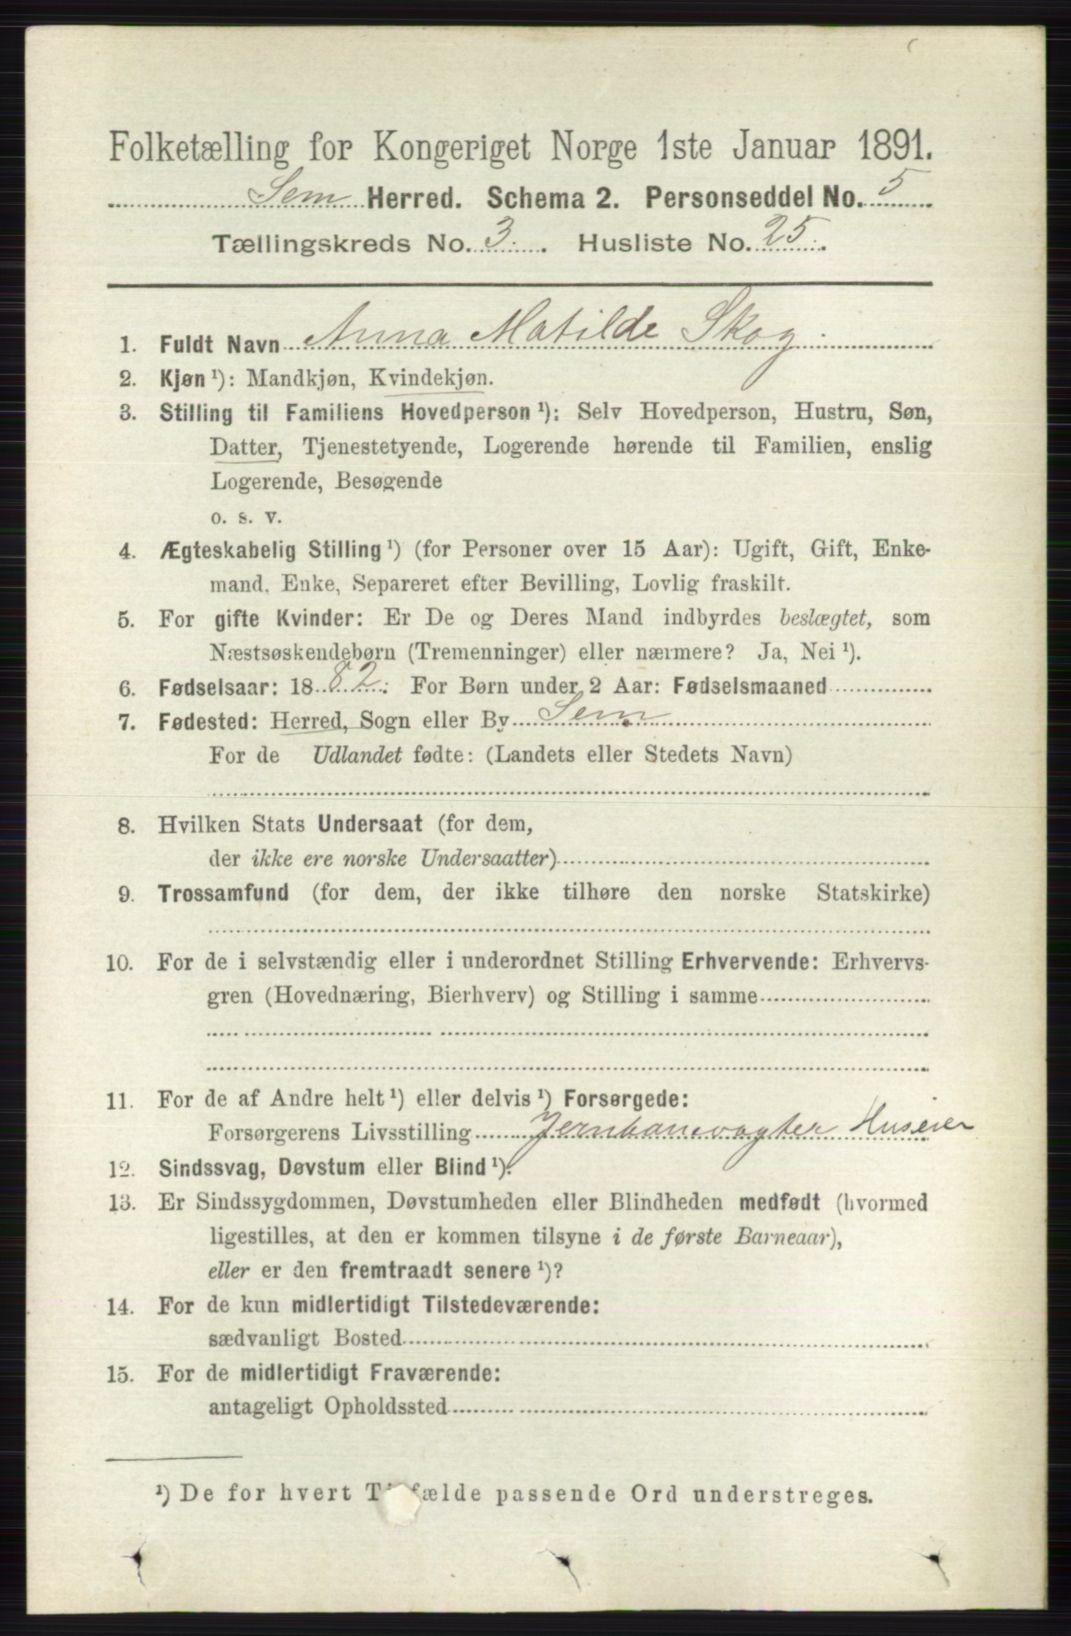 Folketælling for Kongeriget Norge 1ste Januar 1891.
Sem Herred. Schema 2. Personseddel No. 5
Tællingskreds No. 3. Husliste No. 25.
1. Fuldt Navn Anna Matilde Skog
2. Kjøn ¹): Mandkjøn, Kvindekjøn.
3. Stilling til Familiens Hovedperson ¹): Selv Hovedperson, Hustru, Søn,
Datter, Tjenestetyende, Logerende hørende til Familien, enslig
Logerende, Besøgende
o. s. v.
4. Ægteskabelig Stilling ¹) (for Personer over 15 Aar): Ugift, Gift, Enke-
mand, Enke, Separeret efter Bevilling, Lovlig fraskilt.
5. For gifte Kvinder: Er De og Deres Mand indbyrdes beslægtet, som
Næstsøskendebørn (Tremenninger) eller nærmere? Ja, Nei ¹).
6. Fødselsaar: 1882. For Børn under 2 Aar: Fødselsmaaned
7. Fødested: Herred, Sogn eller By Sem
For de Udlandet fødte: (Landets eller Stedets Navn)
8. Hvilken Stats Undersaat (for dem,
der ikke ere norske Undersaatter)
9. Trossamfund (for dem, der ikke tilhøre den norske Statskirke)
10. For de i selvstændig eller i underordnet Stilling Erhvervende: Erhvervs-
gren (Hovednæring, Bierhverv) og Stilling i samme
11. For de af Andre helt ¹) eller delvis ¹) Forsørgede:
Forsørgerens Livsstilling Jernbanevogter Huseier
12. Sindssvag, Døvstum eller Blind ¹).
13. Er Sindssygdommen, Døvstumheden eller Blindheden medfødt (hvormed
ligestilles, at den er kommen tilsyne i de første Barneaar),
eller er den fremtraadt senere ¹)?
14. For de kun midlertidigt Tilstedeværende:
sædvanligt Bosted
15. For de midlertidigt Fraværende:
antageligt Opholdssted
¹) De for hvert Tilfælde passende Ord understreges.